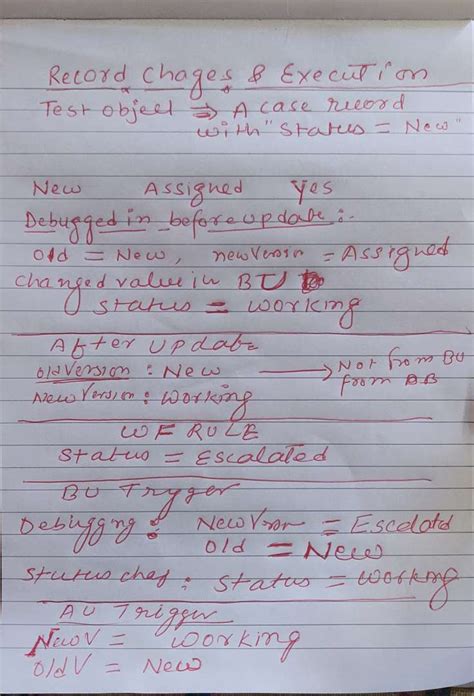 Record Chages & Execution
Test object ⇒ A case record
with "Status = New"
New Assigned Yes
Debugged in before update :-
old = New, newVersion = Assigned
Changed value in BU
Status = Working
After update
old version : New → Not from BU
New Version : Working from DB
WF RULE
Status = Escalated
BU Trygger
Debuggng : New Vrson = Escalatd
old = New
Status : Status = Working
AU Trigger
NewV = Working
OldV = New